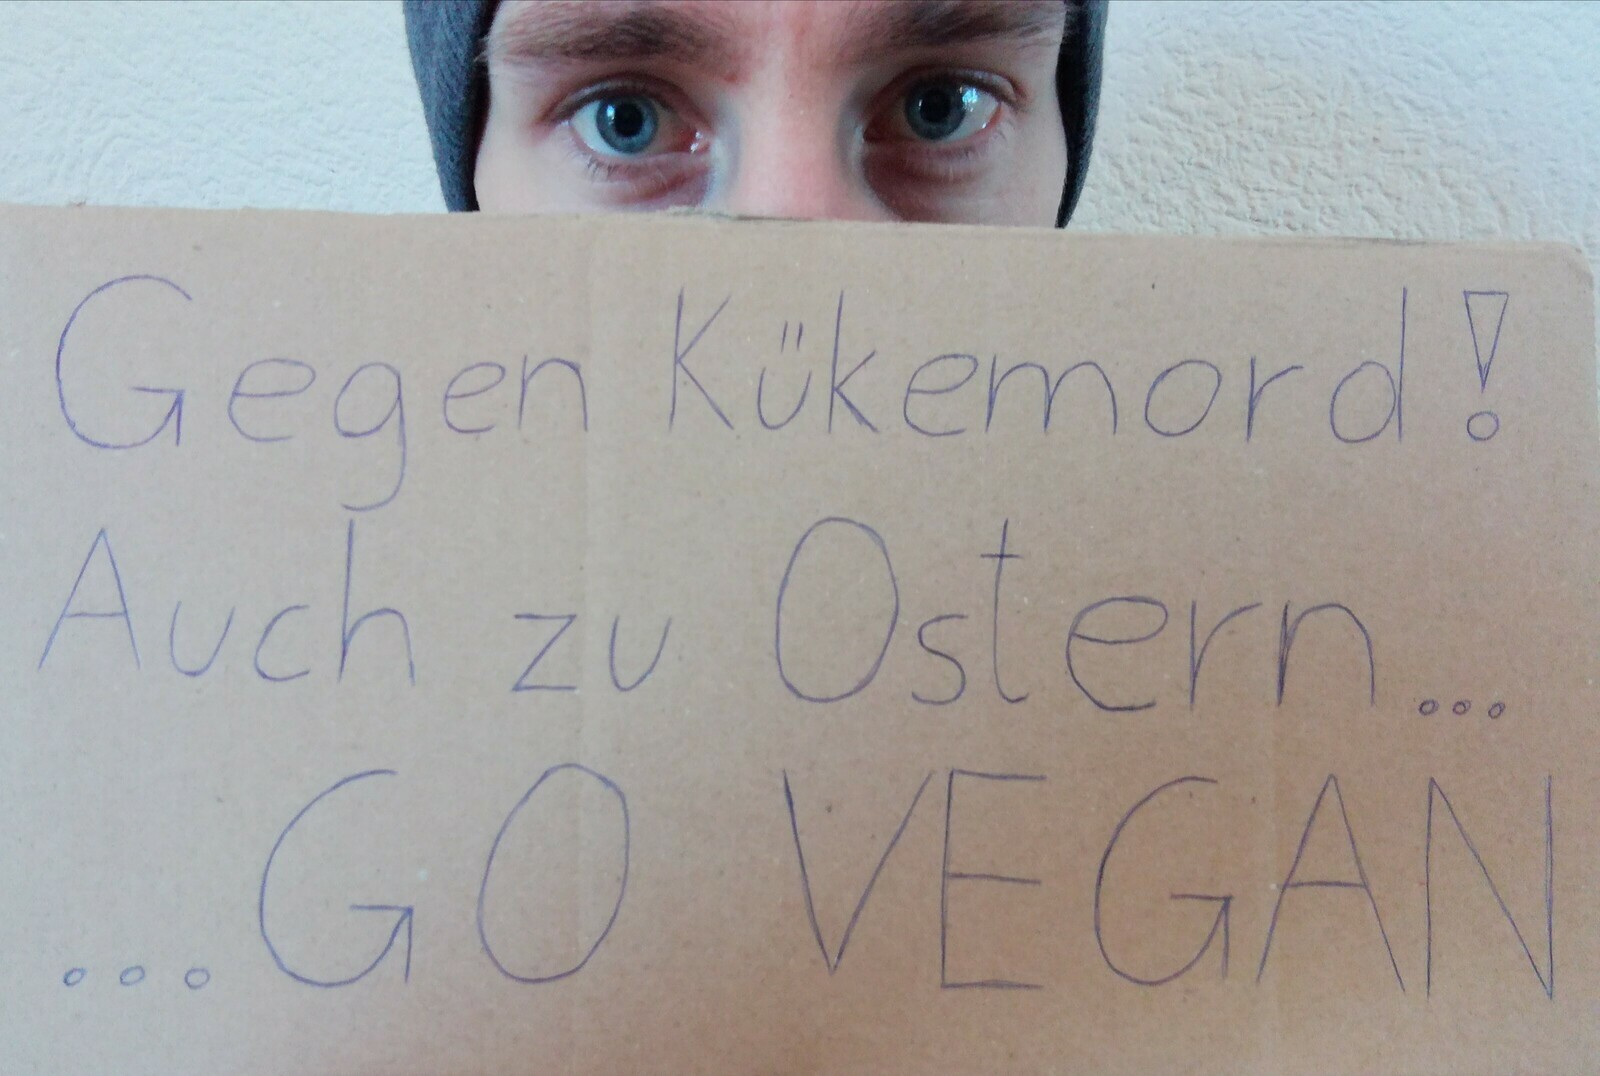 Gegen Kükemord!
Auch zu Ostern...
...GO VEGAN